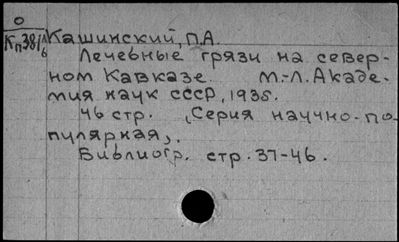 О
Кашинский, П.А.
Лечебные грязи на север-
ном Кавказе. М.-Л. Акаде-
мия наук СССР, 1935.
46 стр. (Серия научно-по-
пулярная).
Библиогр. стр. 37-46.